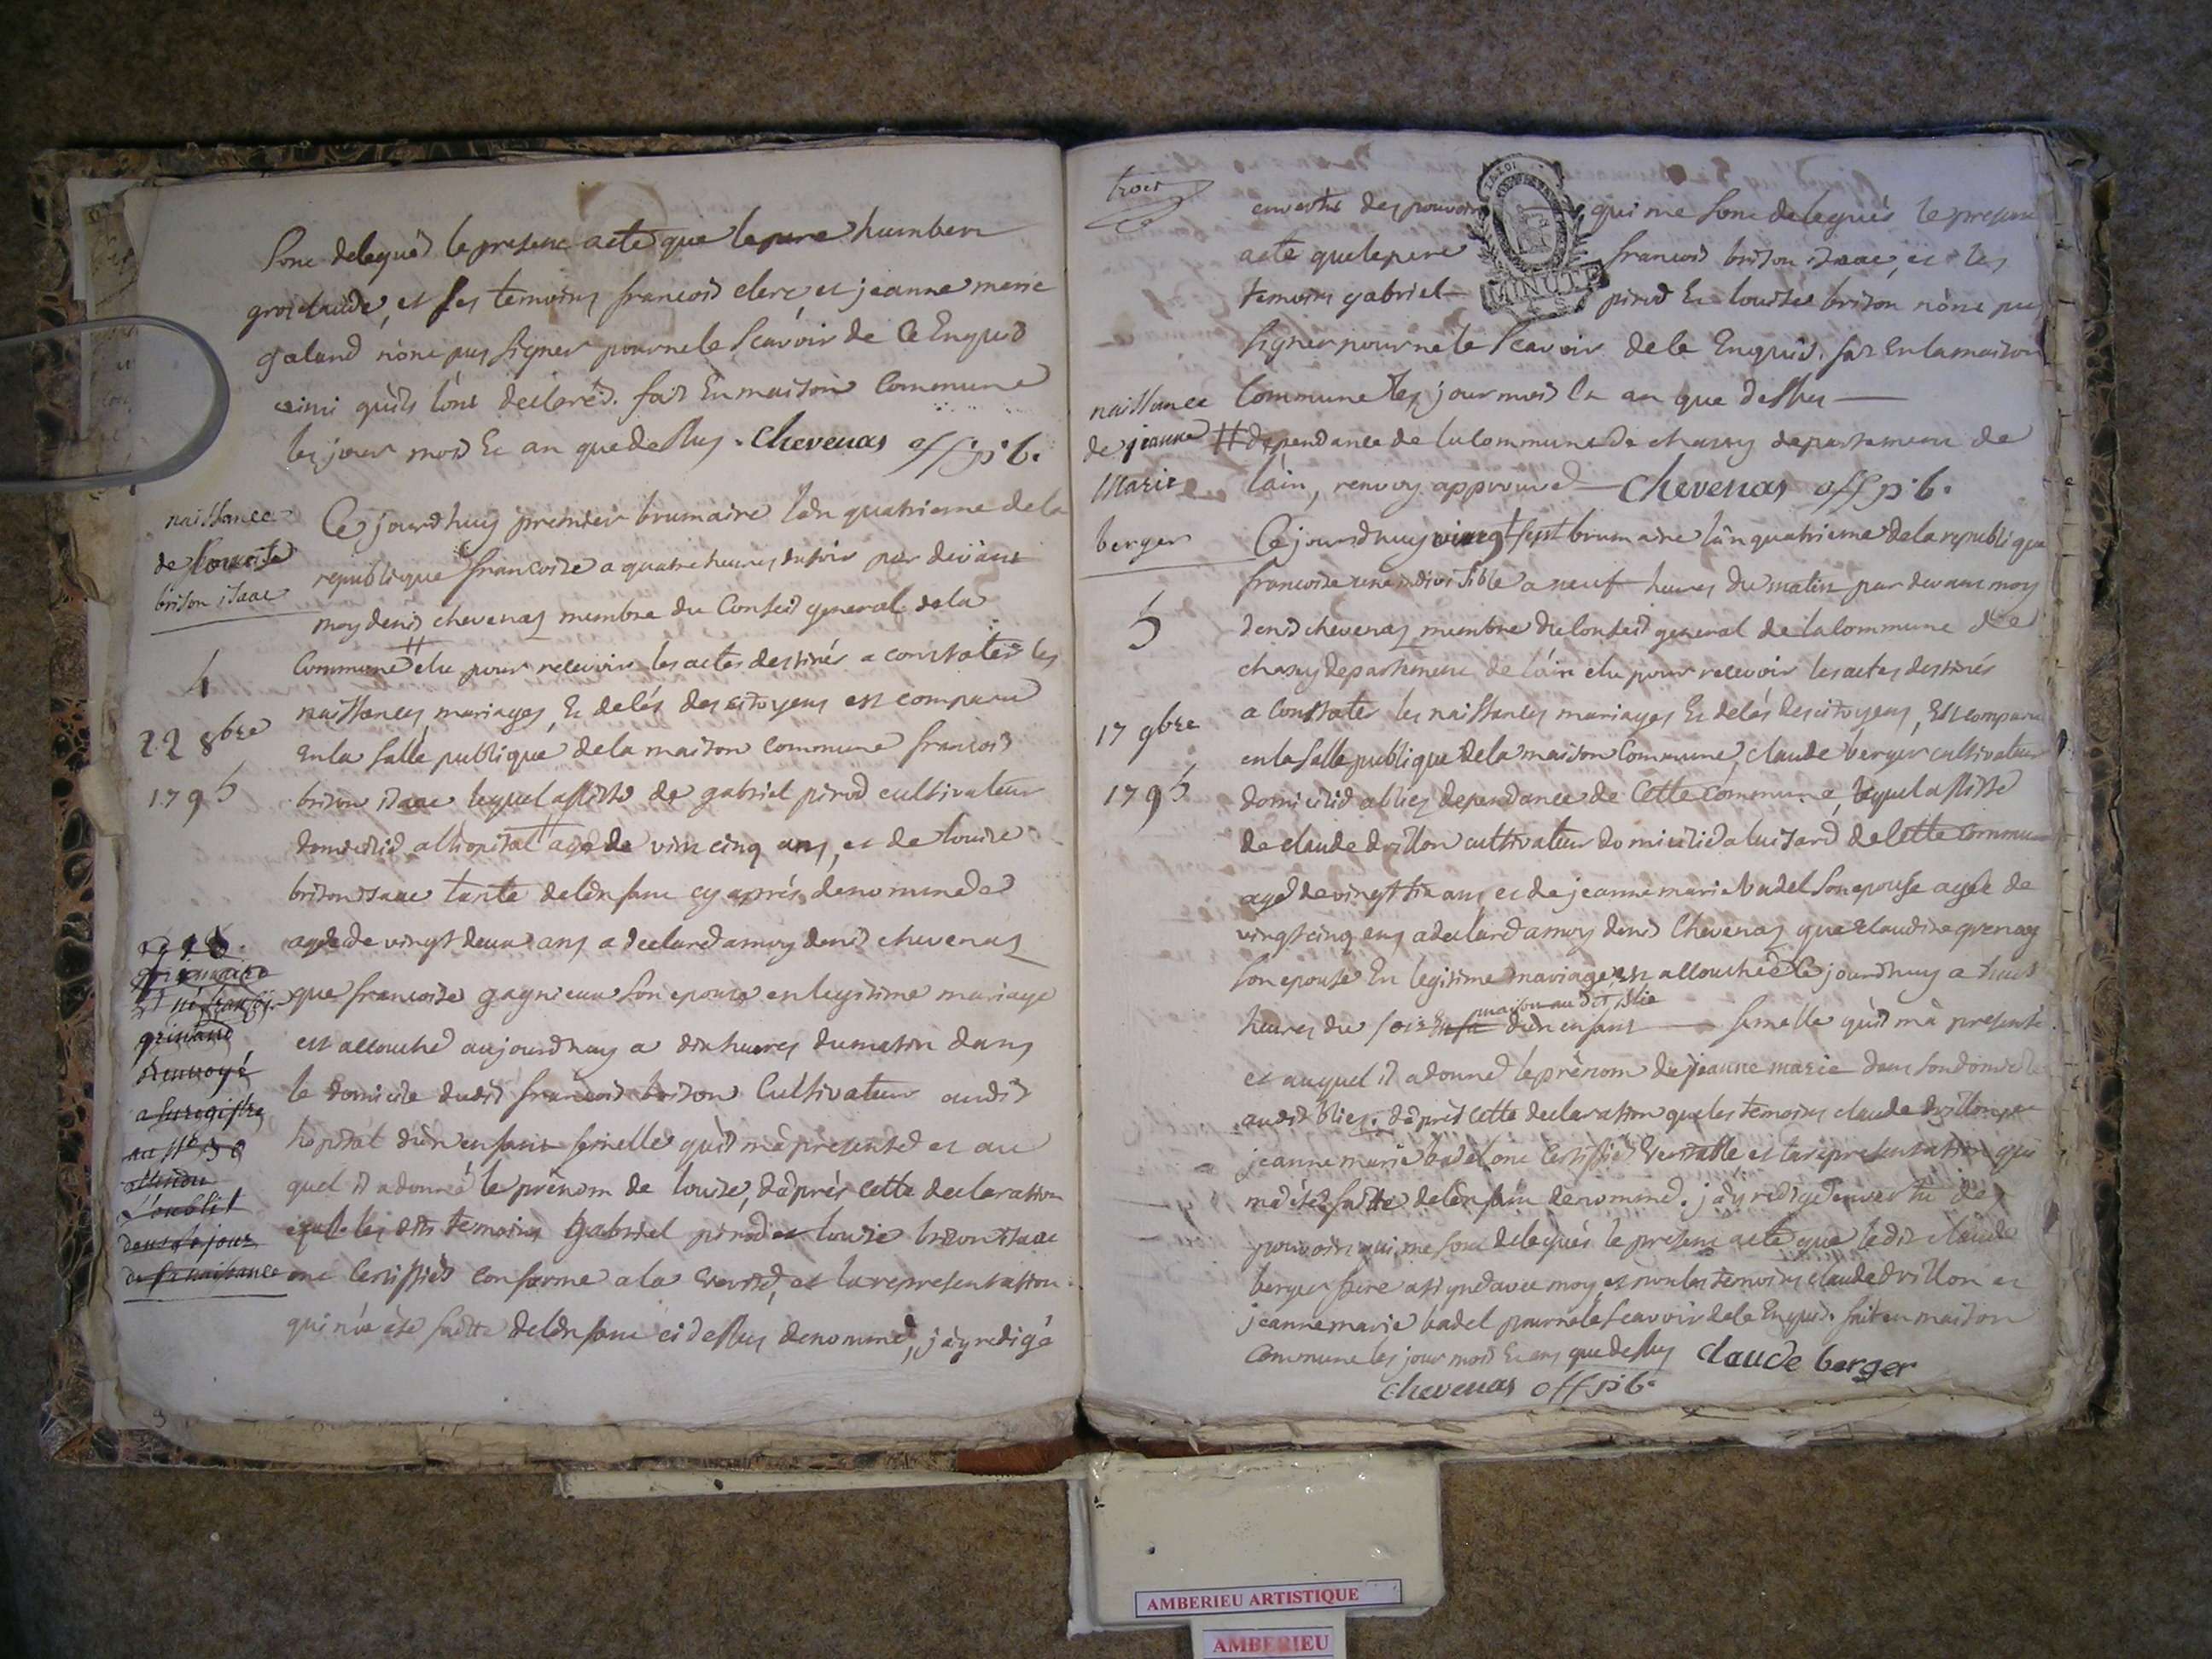 sont delegués le present acte que le pere humbert
groiclaude, et les temoins francois clerc et jeanne marie
galand n'ont pus signer pour ne le scavoir de ce Enquis
ainsi quils l'ont déclarés. fait En maison Commune
les jour mois Et an que dessus. chevenas off. pb.
naissance
de Louise
brison isaac
4
22 8bre
1795
Ce jourdhuy premier brumaire l'an quatrieme de la
republique francoise a quatre heures du soir par devant
moy denis chevenas membre du Conseil general de la
Commune # elu pour recevoir les actes destinés a constater les
naissances mariages Et deces des citoyens est comparu
En la salle publique de la maison Commune francois
brison isaac lequel assisté de gabriel pirod cultivateur
domicilié a lhopital agé de vint cinq ans, et de louise
brison isaac tante de lenfant cy après denommée
agée de vingt deux ans a declaré a moy denis chevenas
que francoise gagnieux son epouse en legitime mariage
est accouché aujourdhuy a dix heures du matin dans
le domicile dudit francois brison Cultivateur audit
hopital d'un enfant femelle qu'il m'a presenté et au
quel il a donné le prénom de louise, d'après cette declaration
que les dits temoins gabriel pirod et louise brison isaac
ont Certiffiés conforme a la verité, et la representation
qui m'a été faitte de lenfant ci dessus denommé, j'ay redigé
grinand
renvoyé
a su registre
au no 30
attendu
l'oublit
dans le jour
de sa naissance
trois
en vertu des pouvoirs qui me sont delegués le present
acte que le pere francois brison isaac, et les
temoins gabriel pirod Et louise brison n'ont pus
signer pour ne le scavoir de ce Enquis. fait En la maison
Commune les jour mois Et an que dessus
# dependance de la Commune de chazey departement de
l'ain, renvoy approuvé chevenas off pb.
LA LOI
MINUTE
naissance
de jeanne
Marie
berger
5
17 9bre
1795
Ce jourdhuy vingt sept brumaire l'an quatrieme de la republique
francoise une indivisible a neuf heures du matin par devant moy
denis chevenas membre du Conseil general de la Commune de
chazey departement de l'ain elu pour recevoir les actes destinés
a constater les naissances mariages Et deces des citoyens, Est comparu
en la salle publique de la maison Commune, claude berger cultivateur
domicilié a blies dependance de Cette Commune, lequel assisté
de claude drillon cultivateur domicilié a luisard de Cette Commune
agé de vingt six ans et de jeanne marie badel son epouse agée de
vingt cinq ans a declaré a moy denis Chevenas que claudine grenay
son epouse En legitime mariage est accouchée Ce jourdhuy a huit
heures du soir d'un enfant femelle qu'il m'a presenté
et auquel il a donné le prénom de jeanne marie dans son domicile
audit blies. d'après cette declaration que les temoins claude drillon et
jeanne marie badel ont Certiffiés veritable et la representation qui
m'a été faitte de lenfant denommé. j'ay redigé en vertu des
pouvoirs qui me sont delegués le present acte que ledit claude
berger pere a signé avec moy et non les temoins claude drillon et
jeanne marie badel pour ne le scavoir de ce Enquis. fait en maison
Commune les jour mois Et an que dessus claude berger
chevenas off pb.
AMBERIEU ARTISTIQUE
AMBERIEU